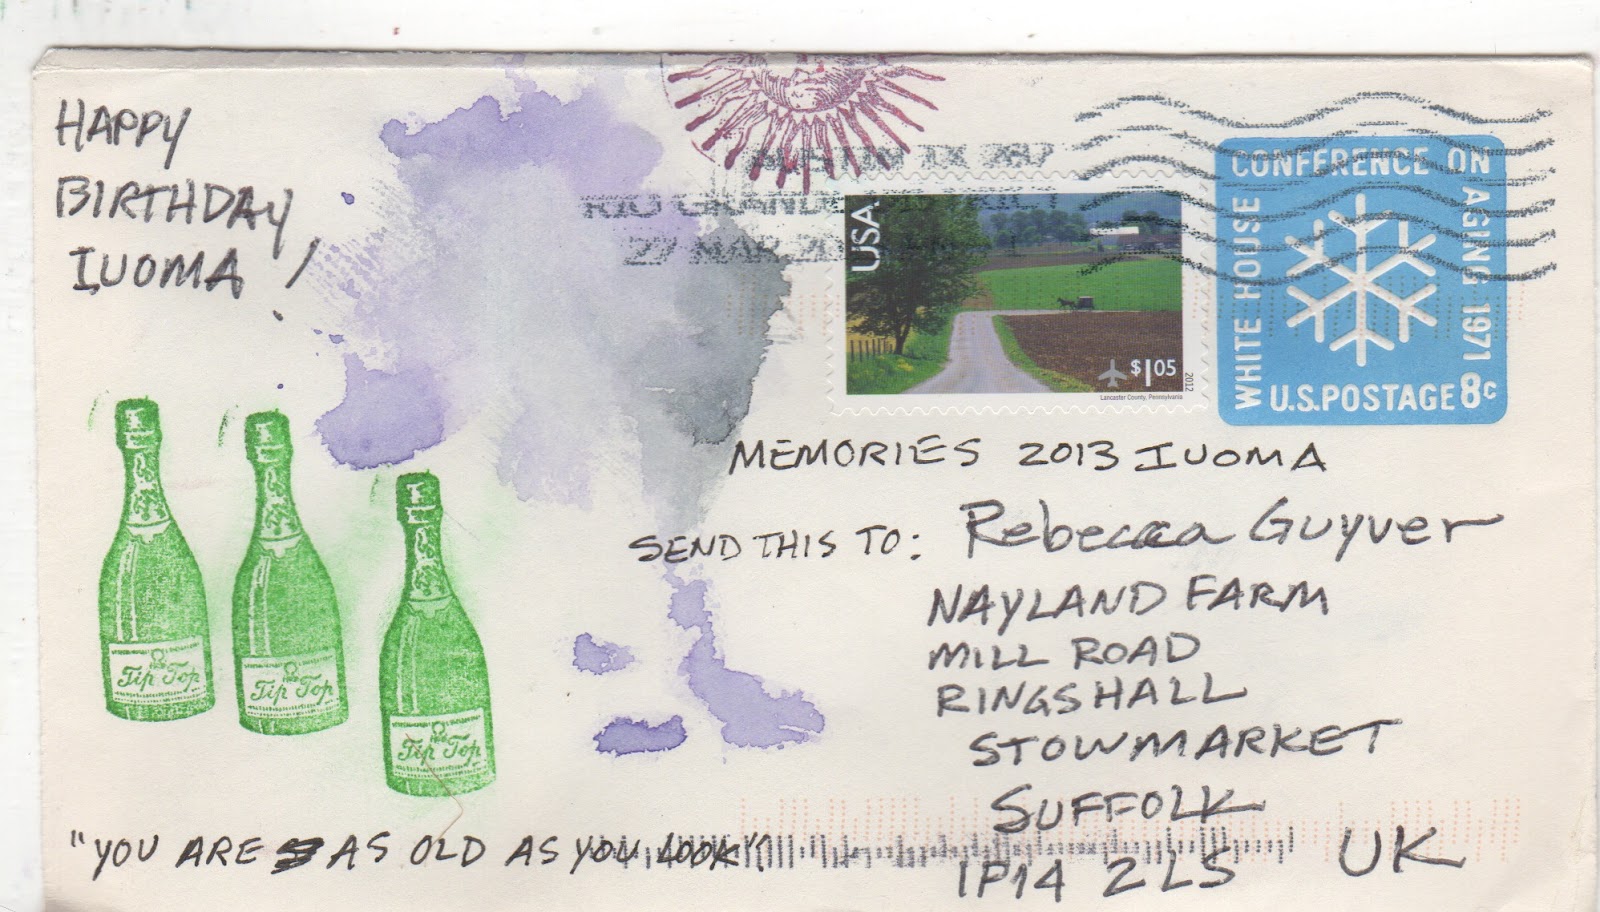 HAPPY
BIRTHDAY
IUOMA!
RIO GRANDE DISTRICT
27 MAR
USA
$1.05
2012
Lancaster County, Pennsylvania
WHITE HOUSE CONFERENCE ON AGING 1971
U.S. POSTAGE 8c
MEMORIES 2013 IUOMA
SEND THIS TO: Rebecca Guyver
NAYLAND FARM
MILL ROAD
RINGSHALL
STOWMARKET
SUFFOLK
IP14 2LS UK
Tip Top
Tip Top
Tip Top
"YOU ARE AS OLD AS YOU LOOK".